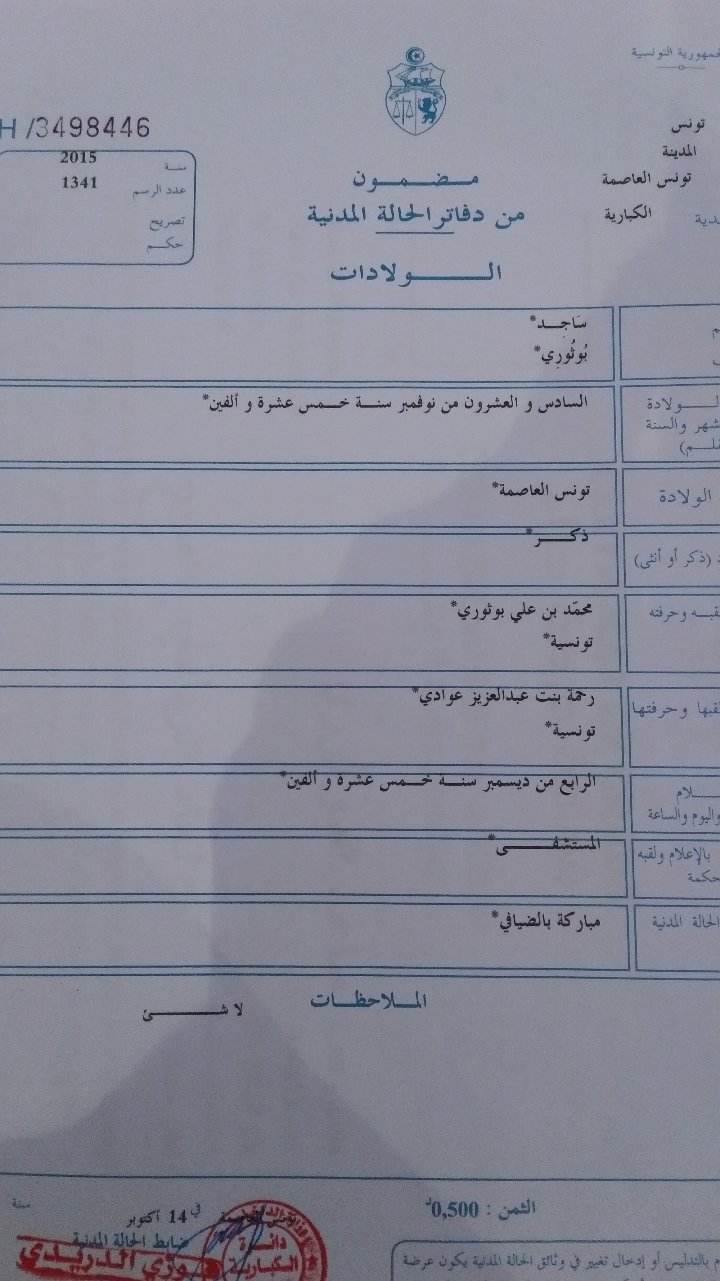 الجمهورية التونسية
تونس
المدينة
تونس العاصمة
الكبارية
H/3498446
سنة 2015
عدد الرسم 1341
تصريح
حكم
مضمون
من دفاتر الحالة المدنية
الولادات
سَاجِد*
بُوثُورِي*
الولادة
السادس و العشرون من نوفمبر سنة خمس عشرة و ألفين*
والسنة
الولادة
تونس العاصمة*
(ذكر أو أنثى)
ذكر*
وحرفته
محمّد بن علي بوثوري*
تونسية*
وحرفتها
رحمة بنت عبدالعزيز عوادي*
تونسية*
الرابع من ديسمبر سنة خمس عشرة و ألفين*
واليوم والساعة
بالإعلام ولقبه
المستشفى*
الحالة المدنية
مباركة بالضيافي*
الملاحظات
لا شئ
الثمن : 0,500د
في 14 أكتوبر
سنة
ضابط الحالة المدنية
دائرة
الكبارية
بالتدليس أو إدخال تغيير في وثائق الحالة المدنية يكون عرضة